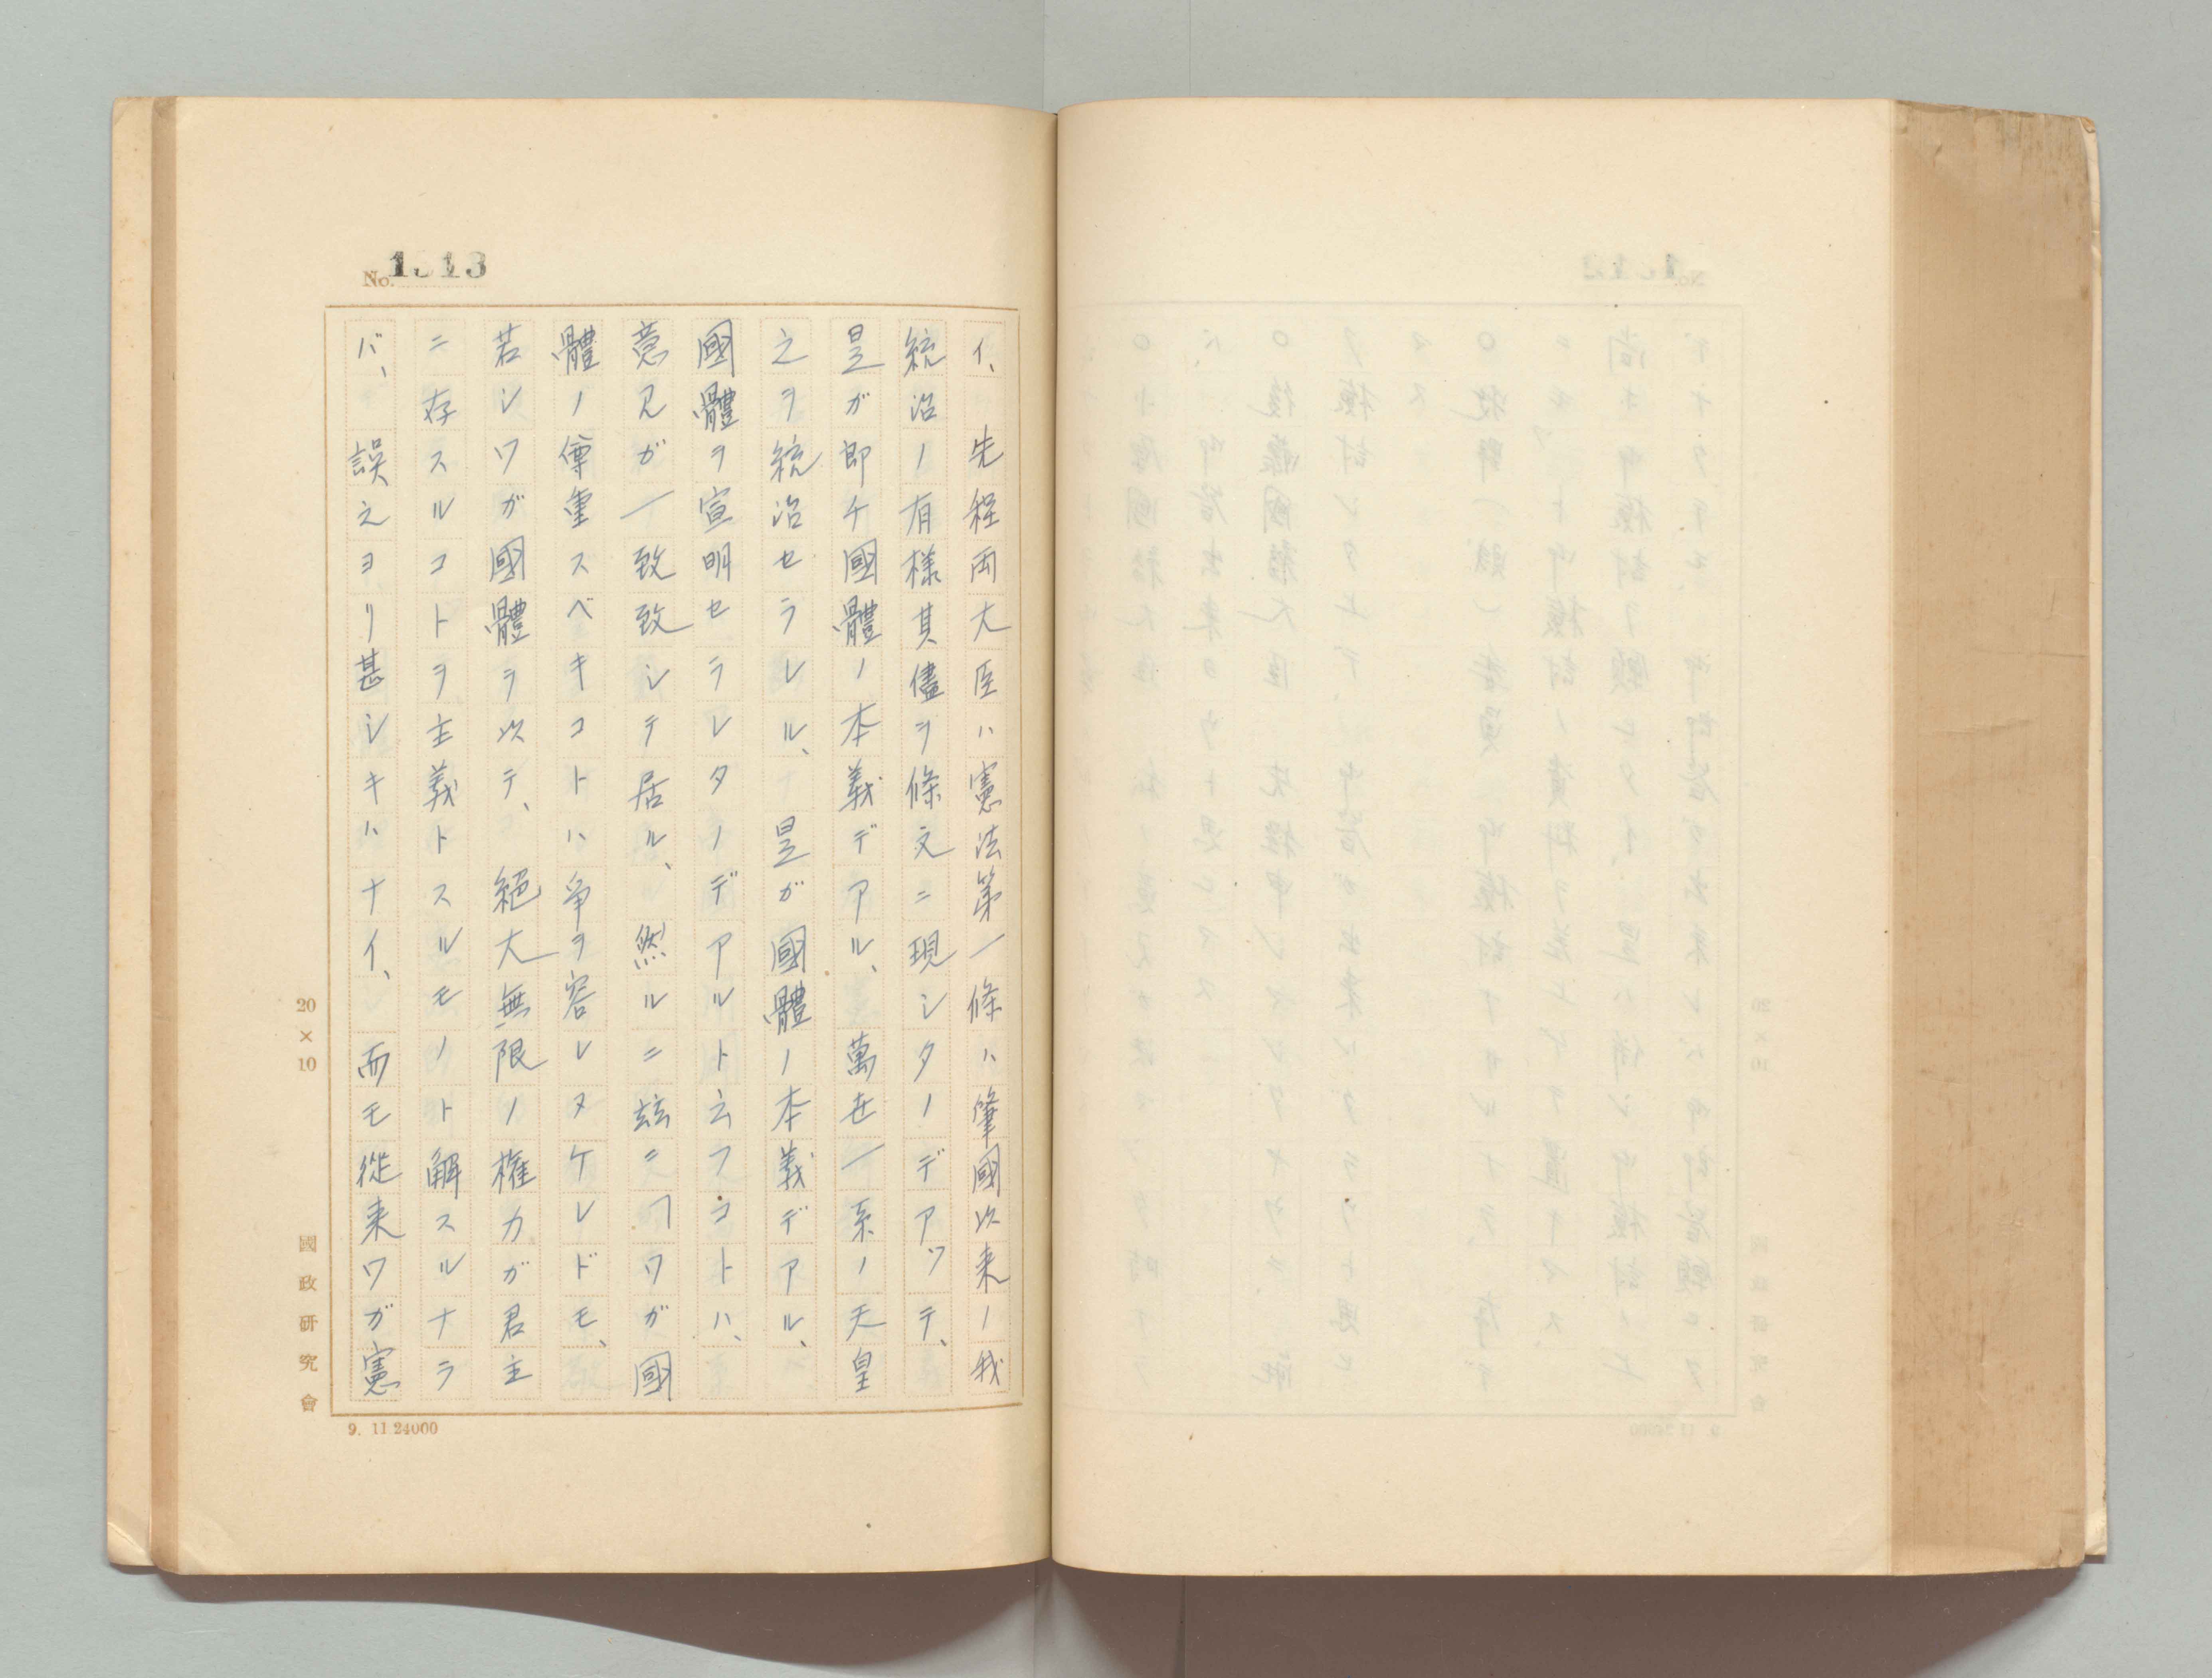 No. 1313
イ、先程両大臣ハ憲法第一條ハ肇國以来ノ我
統治ノ有様其儘ヲ條文ニ現シタノデアッテ、
是ガ即チ國體ノ本義デアル、萬世一系ノ天皇
之ヲ統治セラレル、是ガ國體ノ本義デアル、
國體ヲ宣明セラレタノデアルト云フコトハ、
意見ガ一致致シテ居ル、然ルニ茲ニ「ワガ國
體ノ尊重スベキコトハ争ヲ容レヌケレドモ、
若シワガ國體ヲ以テ、絕大無限ノ權力ガ君主
ニ存スルコトヲ主義トスルモノト解スルナラ
バ、誤之ヨリ甚シキハナイ、而モ從来ワガ憲
20×10
國政研究會
9. 11 24000